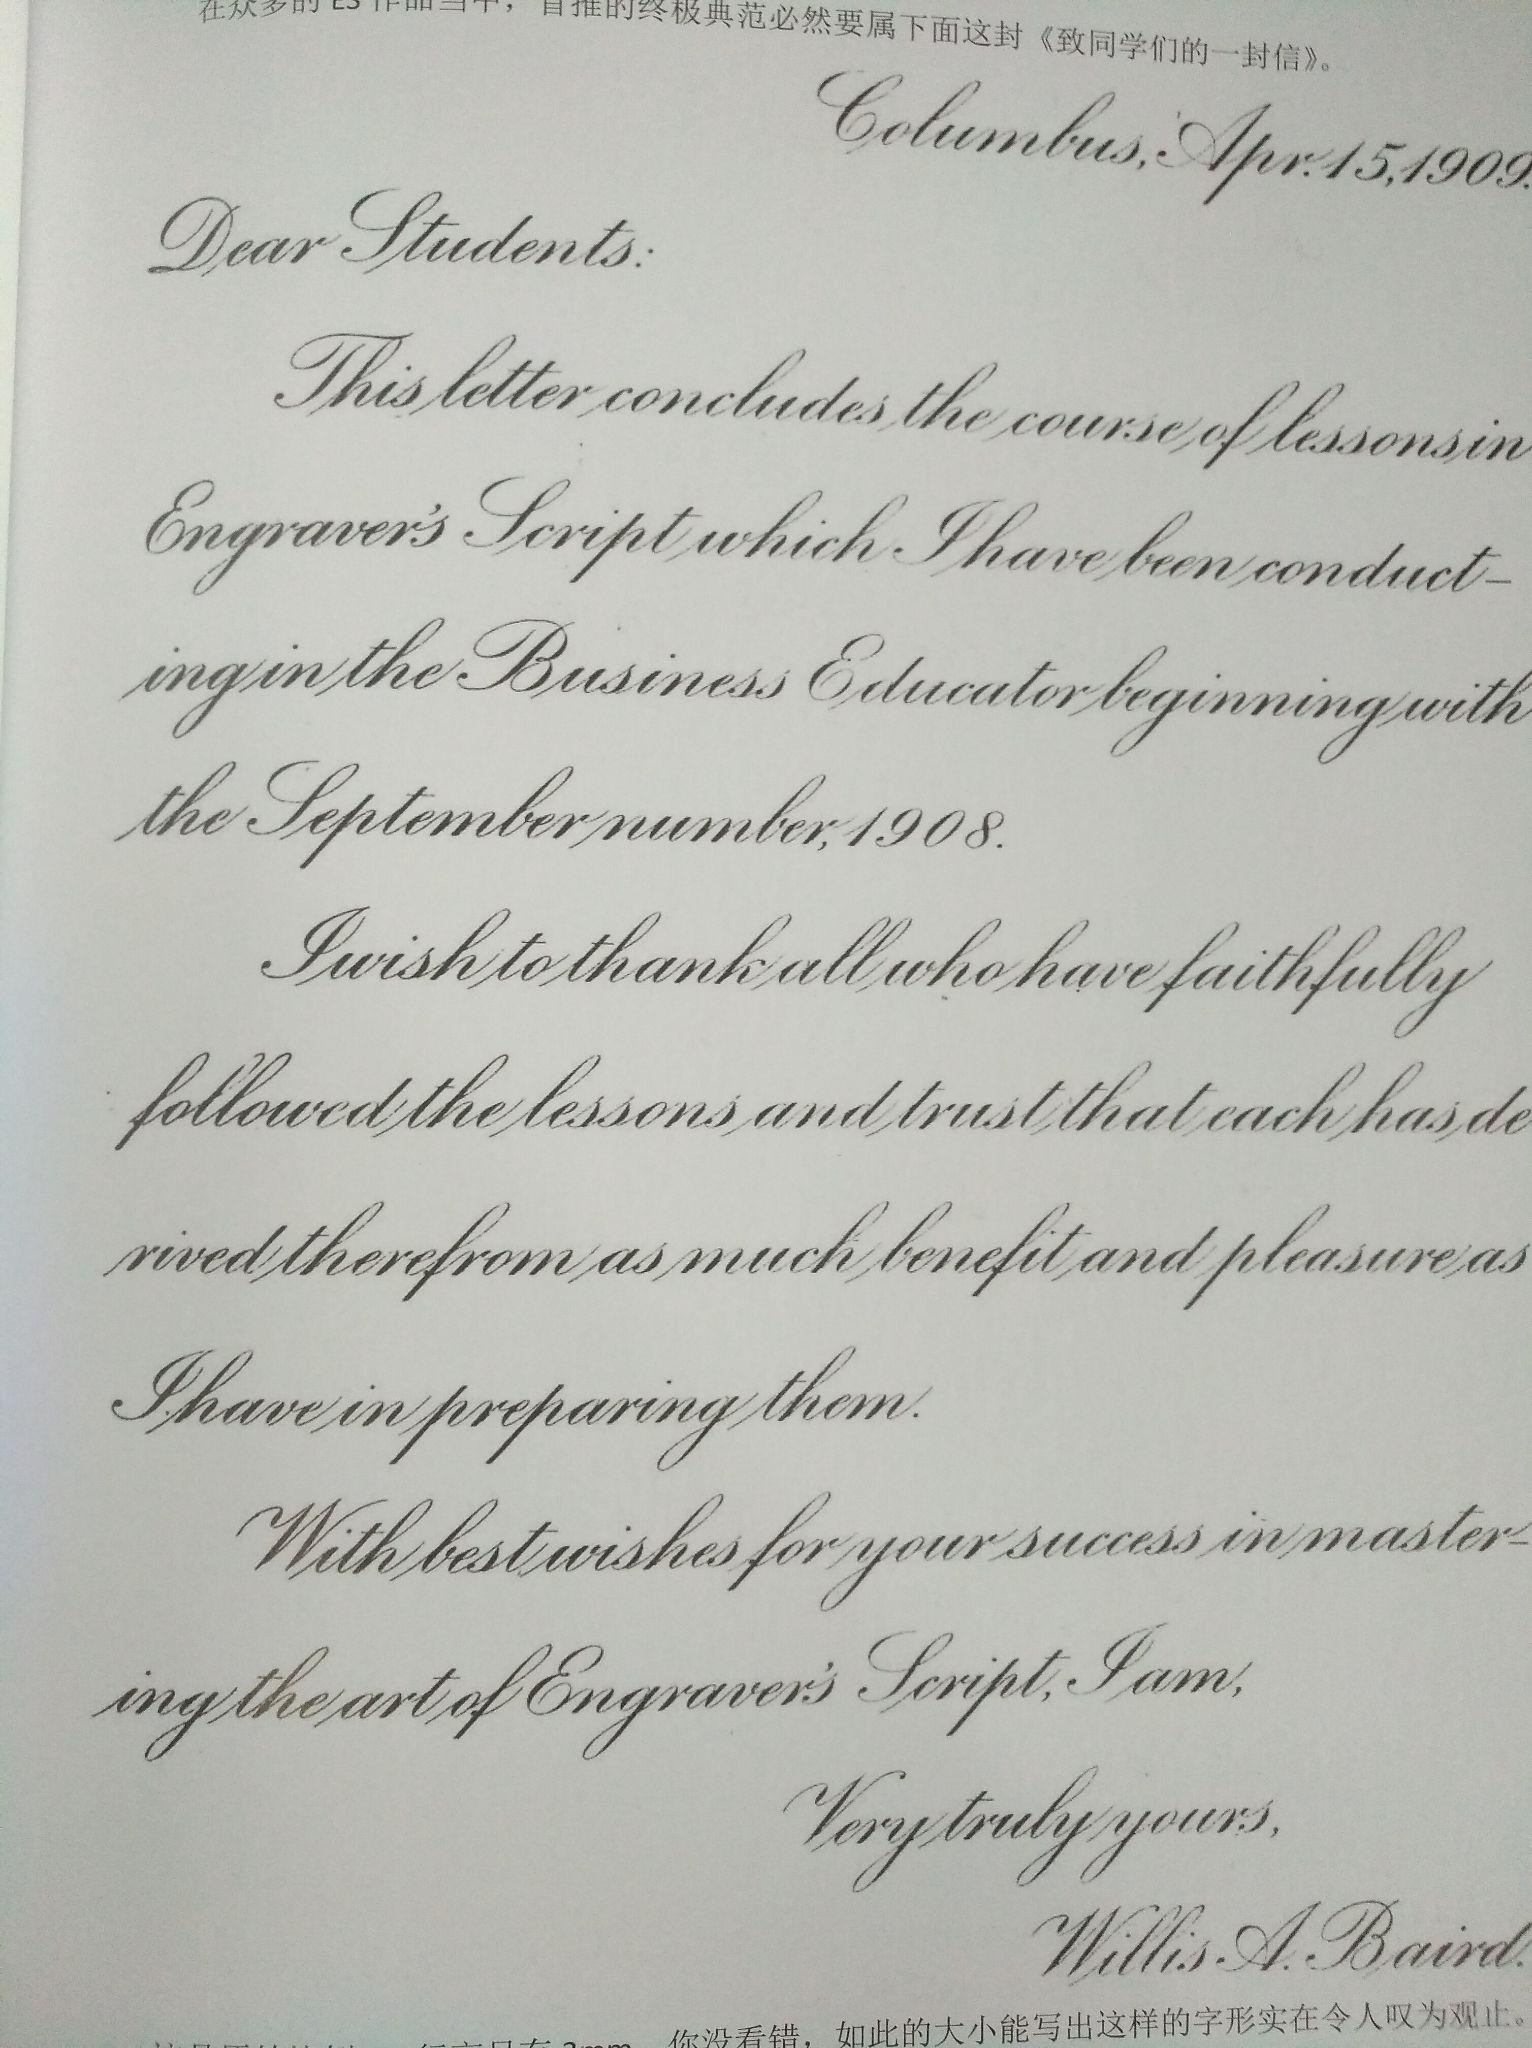 在众多的 ES 作品当中，首推的终极典范必然要属下面这封《致同学们的一封信》。
Columbus, Apr. 15, 1909.
Dear Students:
This letter concludes the course of lessons in
Engraver's Script which I have been conduct-
ing in the Business Educator beginning with
the September number, 1908.
I wish to thank all who have faithfully
followed the lessons and trust that each has de
rived therefrom as much benefit and pleasure as
I have in preparing them.
With best wishes for your success in master-
ing the art of Engraver's Script, I am,
Very truly yours,
Willis A. Baird.
2mm，你没看错，如此的大小能写出这样的字形实在令人叹为观止。